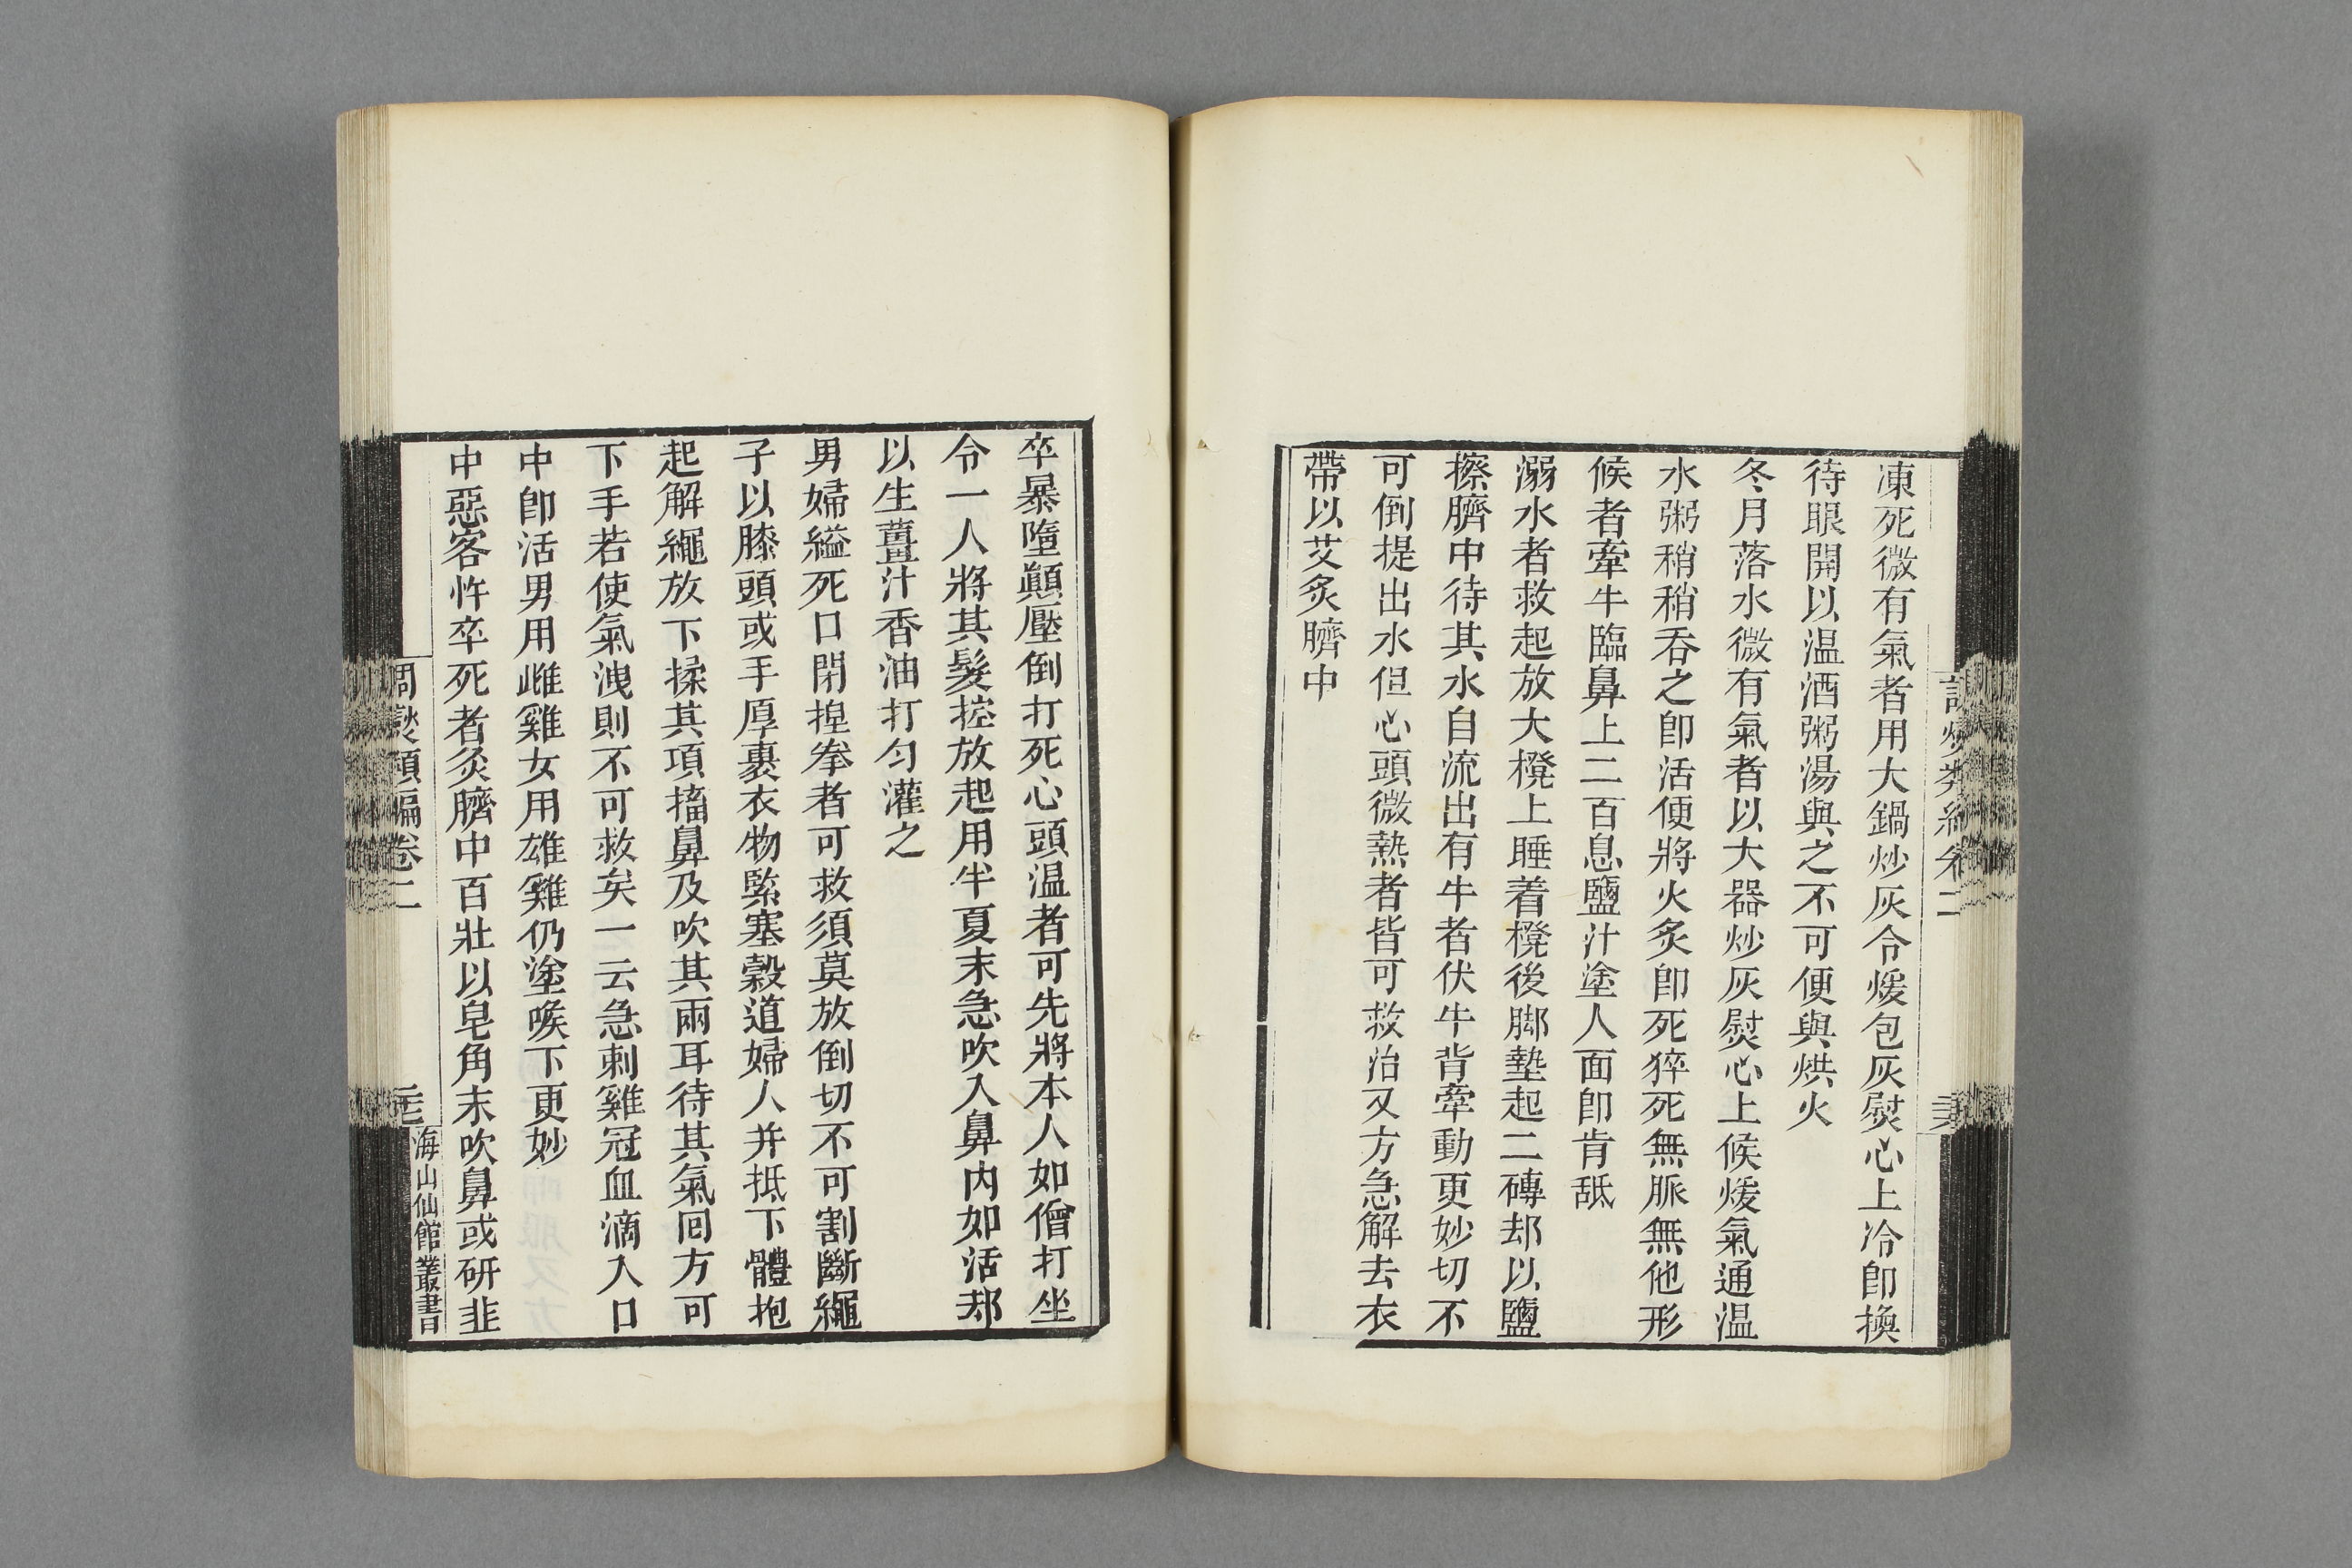 凍死微有氣者用大鍋炒灰令煖包灰熨心上冷卽換
待眼開以温酒粥湯與之不可便與烘火
冬月落水微有氣者以大器炒灰熨心上候煖氣通温
水粥稍稍吞之卽活便將火炙卽死猝死無脈無他形
候者牽牛臨鼻上二百息鹽汁塗人面卽肯舐
溺水者救起放大櫈上睡着櫈後脚墊起二磚却以鹽
擦臍中待其水自流出有牛者伏牛背牽動更妙切不
可倒提出水但心頭微熱者皆可救治又方急解去衣
帶以艾炙臍中
卒暴墮顚壓倒打死心頭温者可先將本人如僧打坐
令一人將其髮控放起用半夏末急吹入鼻内如活却
以生薑汁香油打匀灌之
男婦縊死口閉揑拳者可救須莫放倒切不可割斷繩
子以膝頭或手厚裹衣物緊塞穀道婦人并抵下體抱
起解繩放下揉其項搐鼻及吹其兩耳待其氣囘方可
下手若使氣洩則不可救矣一云急刺雞冠血滴入口
中卽活男用雌雞女用雄雞仍塗喉下更妙
中惡客忤卒死者灸臍中百壯以皂角末吹鼻或研韭
調爕類編卷二
海山仙館叢書